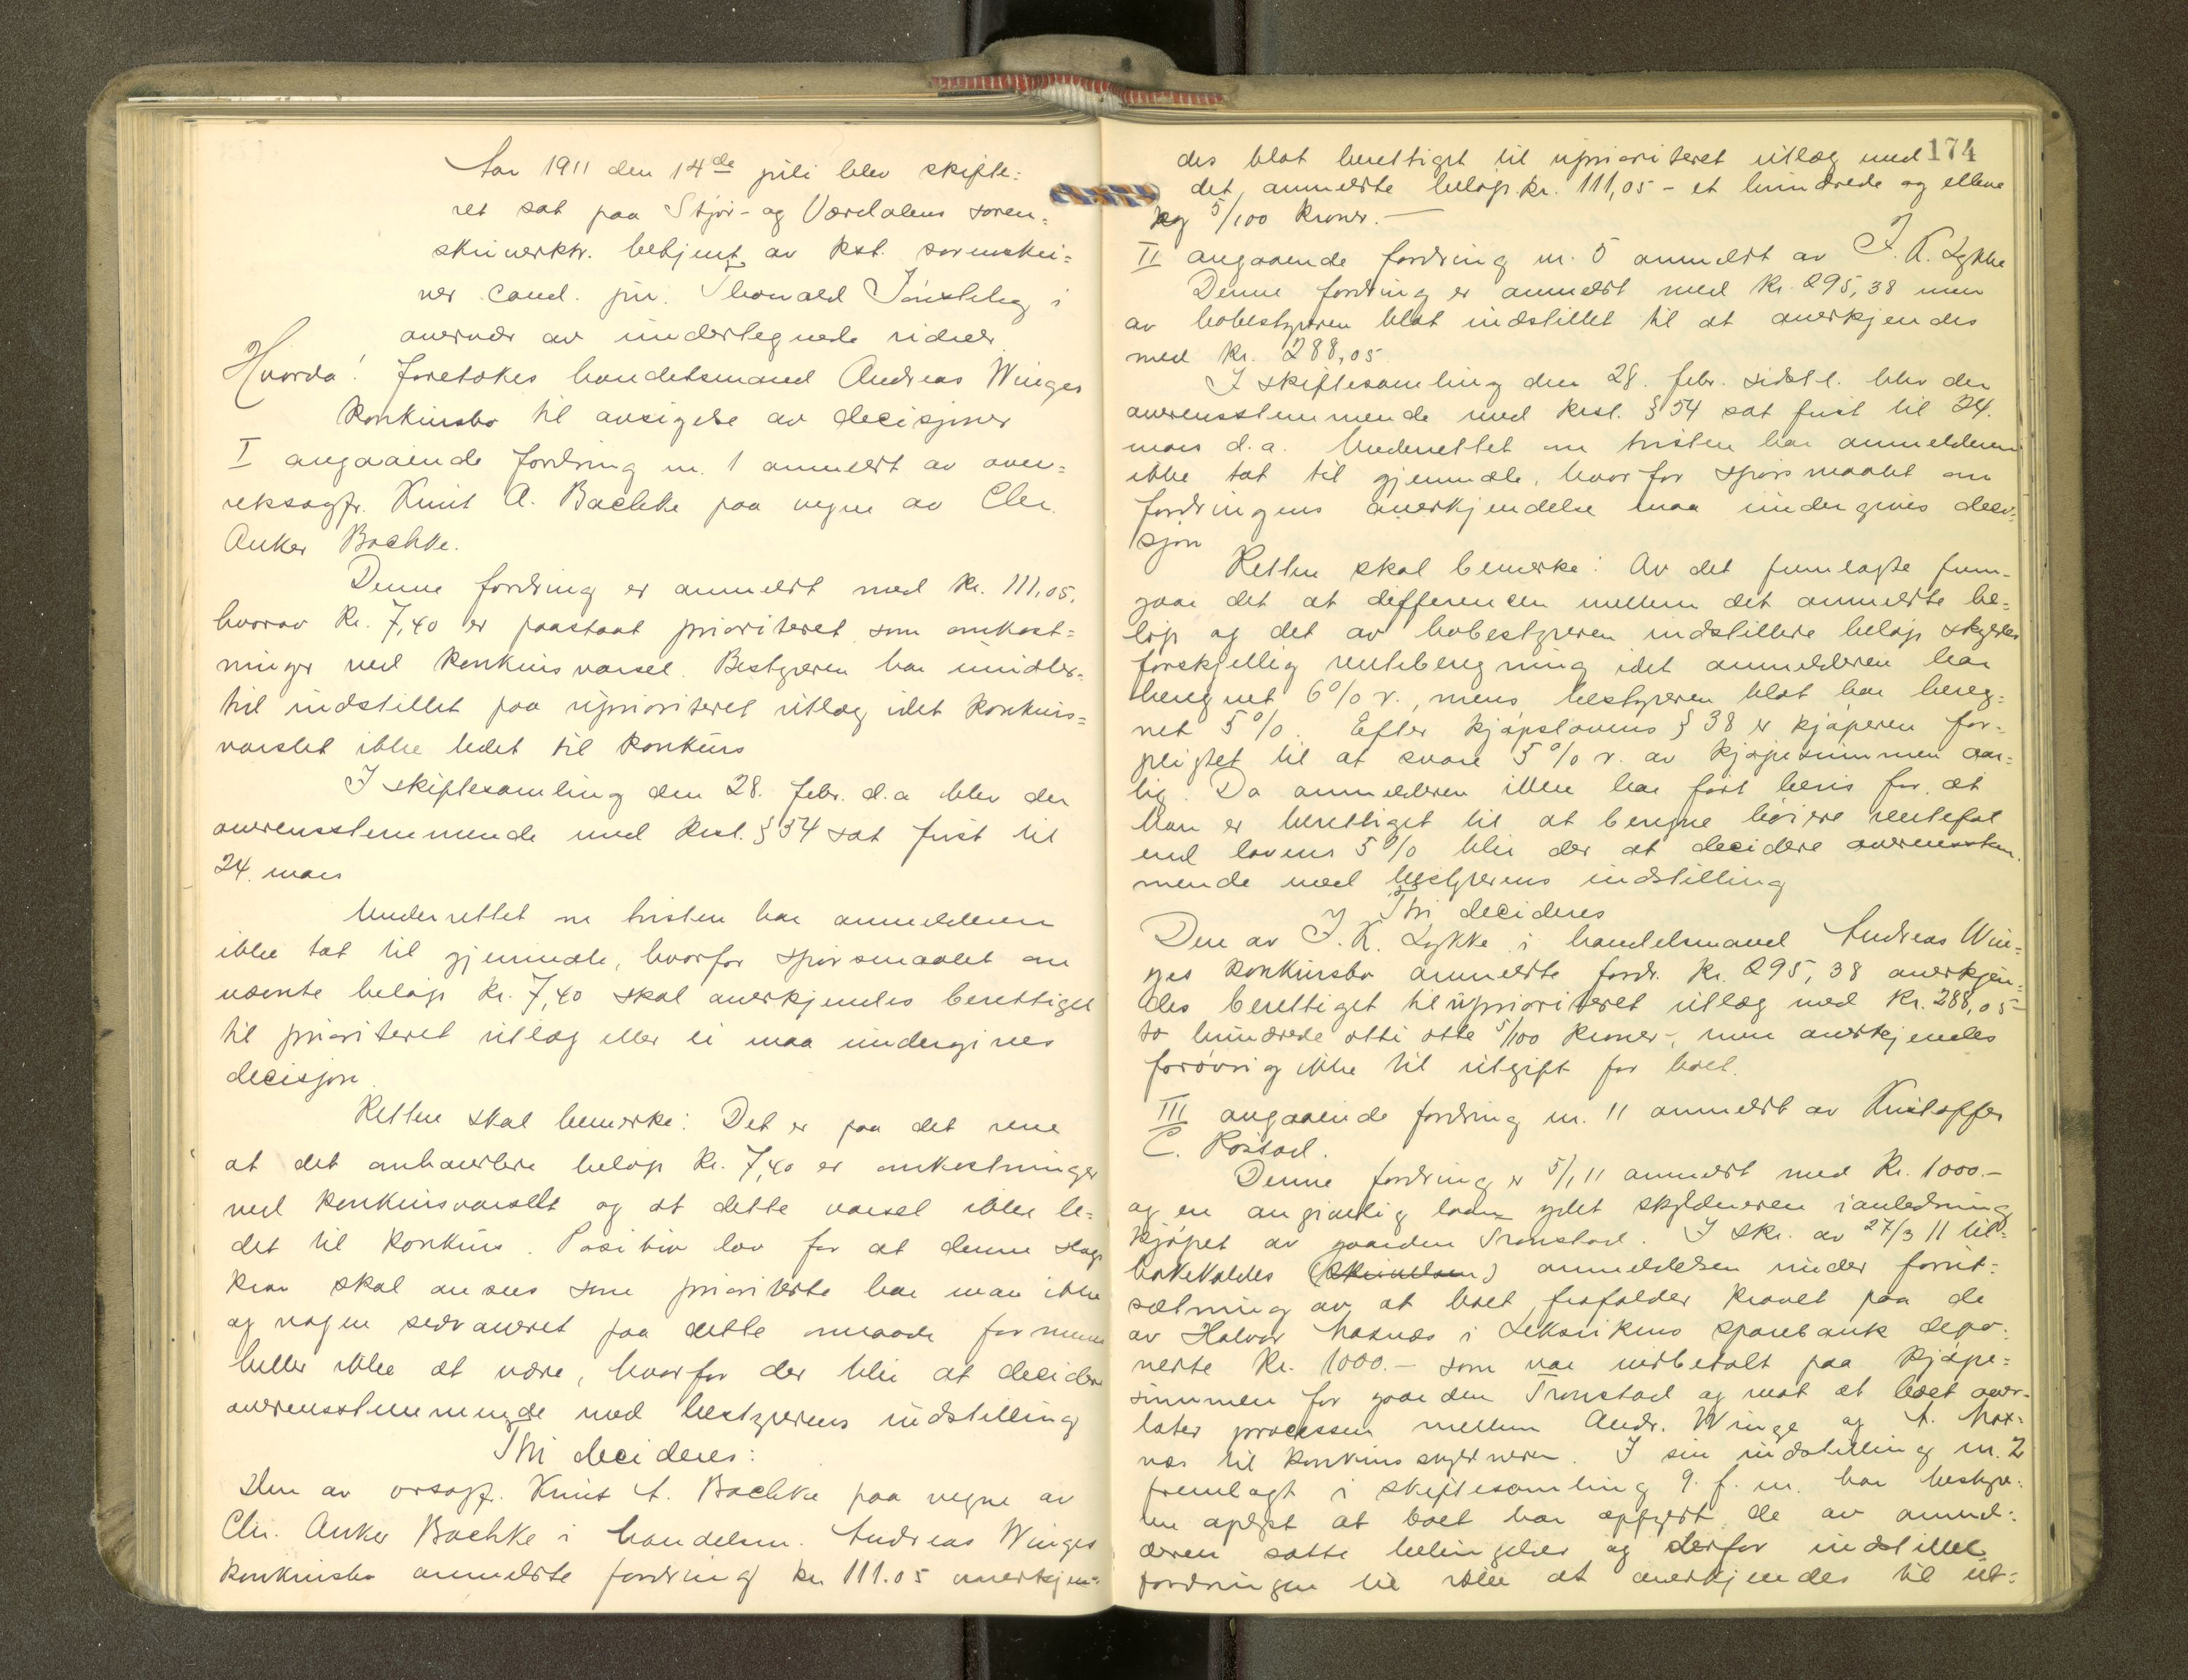 Aar 1911 den 14de juli blev skifte=
ret sat paa Stjør- og Værdalens soren=
skriverktr. betjent av kst. sorenskri=
ver cand. jur. Thorvald Jönsberg i
overvær av undertegnede vidner
Hvorda! foretokes handelsmand Andreas Winges
konkursbo til avsigelse av decisjoner
I angaaende fordring nr. 1 anmeldt av over=
retssagfr. Knut A. Bachke paa vegne av Chr.
Anker Bachke.
Denne fordring er anmeldt med kr. 111,05,
hvorav kr. 7,40 er paastaat prioriteret som omkost=
ninger ved konkursvarsel. Bestyreren har imidler=
tid indstillet paa uprioriteret utlæg idet konkurs=
varslet ikke ledet til konkurs
I skiftesamling den 28. febr. d.a blev der
overensstemmende med krsl. § 54 sat frist til
24. mars
Underrettet om fristen har anmelderen
ikke tat til gjenmæle, hvorfor spørsmaalet om
nævnte beløp kr. 7,40 skal anerkjendes berettiget
til prioriteret utlæg eller ei maa undergives
decisjon.
Retten skal bemerke: Det er paa det rene
at det omhandlere beløp kr. 7,40 er omkostninger
ved konkursvarslet og at dette varsel ikke le=
det til konkurs. Positiv lov for at denne slags
krav skal ansees som prioriterte har man ikke
og nogen sedvaneret paa dette omraade formenes
heller ikke at være, hvorfor der blir at decidere
overensstemmende med bestyrerens indstilling
Thi decideres:
Den av orsagf. Knut A. Bachke paa vegne av
Chr. Anker Bachke i handelsm. Andreas Winges
konkursbo anmeldte fordring kr. 111.05 anerkjen=
174
des blot berettiget til uprioriteret utlæg med
det anmeldte beløp kr. 111,05 - et hundrede og elleve
og 5/100 kroner. -
II angaaende fordring nr. 5 anmeldt av I. K. Lykke
Denne fordring er anmeldt med kr. 295,38 men
av bobestyreren blot indstillet til at anerkjendes
med kr. 288,05
I skiftesamling den 28. febr. sidstl. blev der
overensstemmende med krsl. § 54 sat frist til 24.
mars d.a. Underrettet om fristen har anmelderen
ikke tat til gjenmæle, hvorfor spørsmaalet om
fordringens anerkjendelse maa undergives deci=
sjon
Retten skal bemerke: Av det fremlagte frem-
gaar det at differencen mellem det anmeldte be=
løp og det av bobestyreren indstillede beløp skyldes
forskjellig renteberegning idet anmelderen har
beregnet 6% r., mens bestyreren blot har bereg=
net 5%. Efter kjøpslovens § 38 er kjøperen for=
pligtet til at svare 5% r. av kjøpesummen aar=
lig. Da anmelderen ikke har ført bevis for at
han er berettiget til at beregne høiere rentefot
end lovens 5% blir der at decidere overensstem
mende med bestyrerens indstilling
Thi decideres
Den av I. K. Lykke i handelsmand Andreas Win=
ges konkursbo anmeldte fordr. kr. 295,38 anerkjen=
des berettiget til uprioriteret utlæg med kr. 288,05-
to hundrede otti otte 5/100 kroner-, men anerkjendes
forøvrig ikke til utgift for boet.
III angaaende fordring nr. 11 anmeldt av Kristoffer
C. Rostad.
Denne fordring er 5/1 11 anmeldt med kr. 1000.-
og en angivelig laan ydet skyldneren i anledning
kjøpet av gaarden Tronstad. I skr. av 27/3 11 til=
bakekaldes anmeldelsen under forut=
sætning av at boet frafalder kravet paa de
av Halvor Moxnæs i Leksvikens sparebank depo=
nerte kr. 1000.- som var indbetalt paa kjøpe=
summen for gaarden Tronstad og mot at boet over-
later processen mellem Andr. Winge og H. Mox=
næs til konkursskyldneren. I sin indstilling nr. 2
fremlagt i skiftesamling 9. f. m. har bestyre=
ren oplyst at boet har opfyldt de av anmel=
deren satte betingelser og derfor indstillet
fordringen til ikke at anerkjendes til ut=